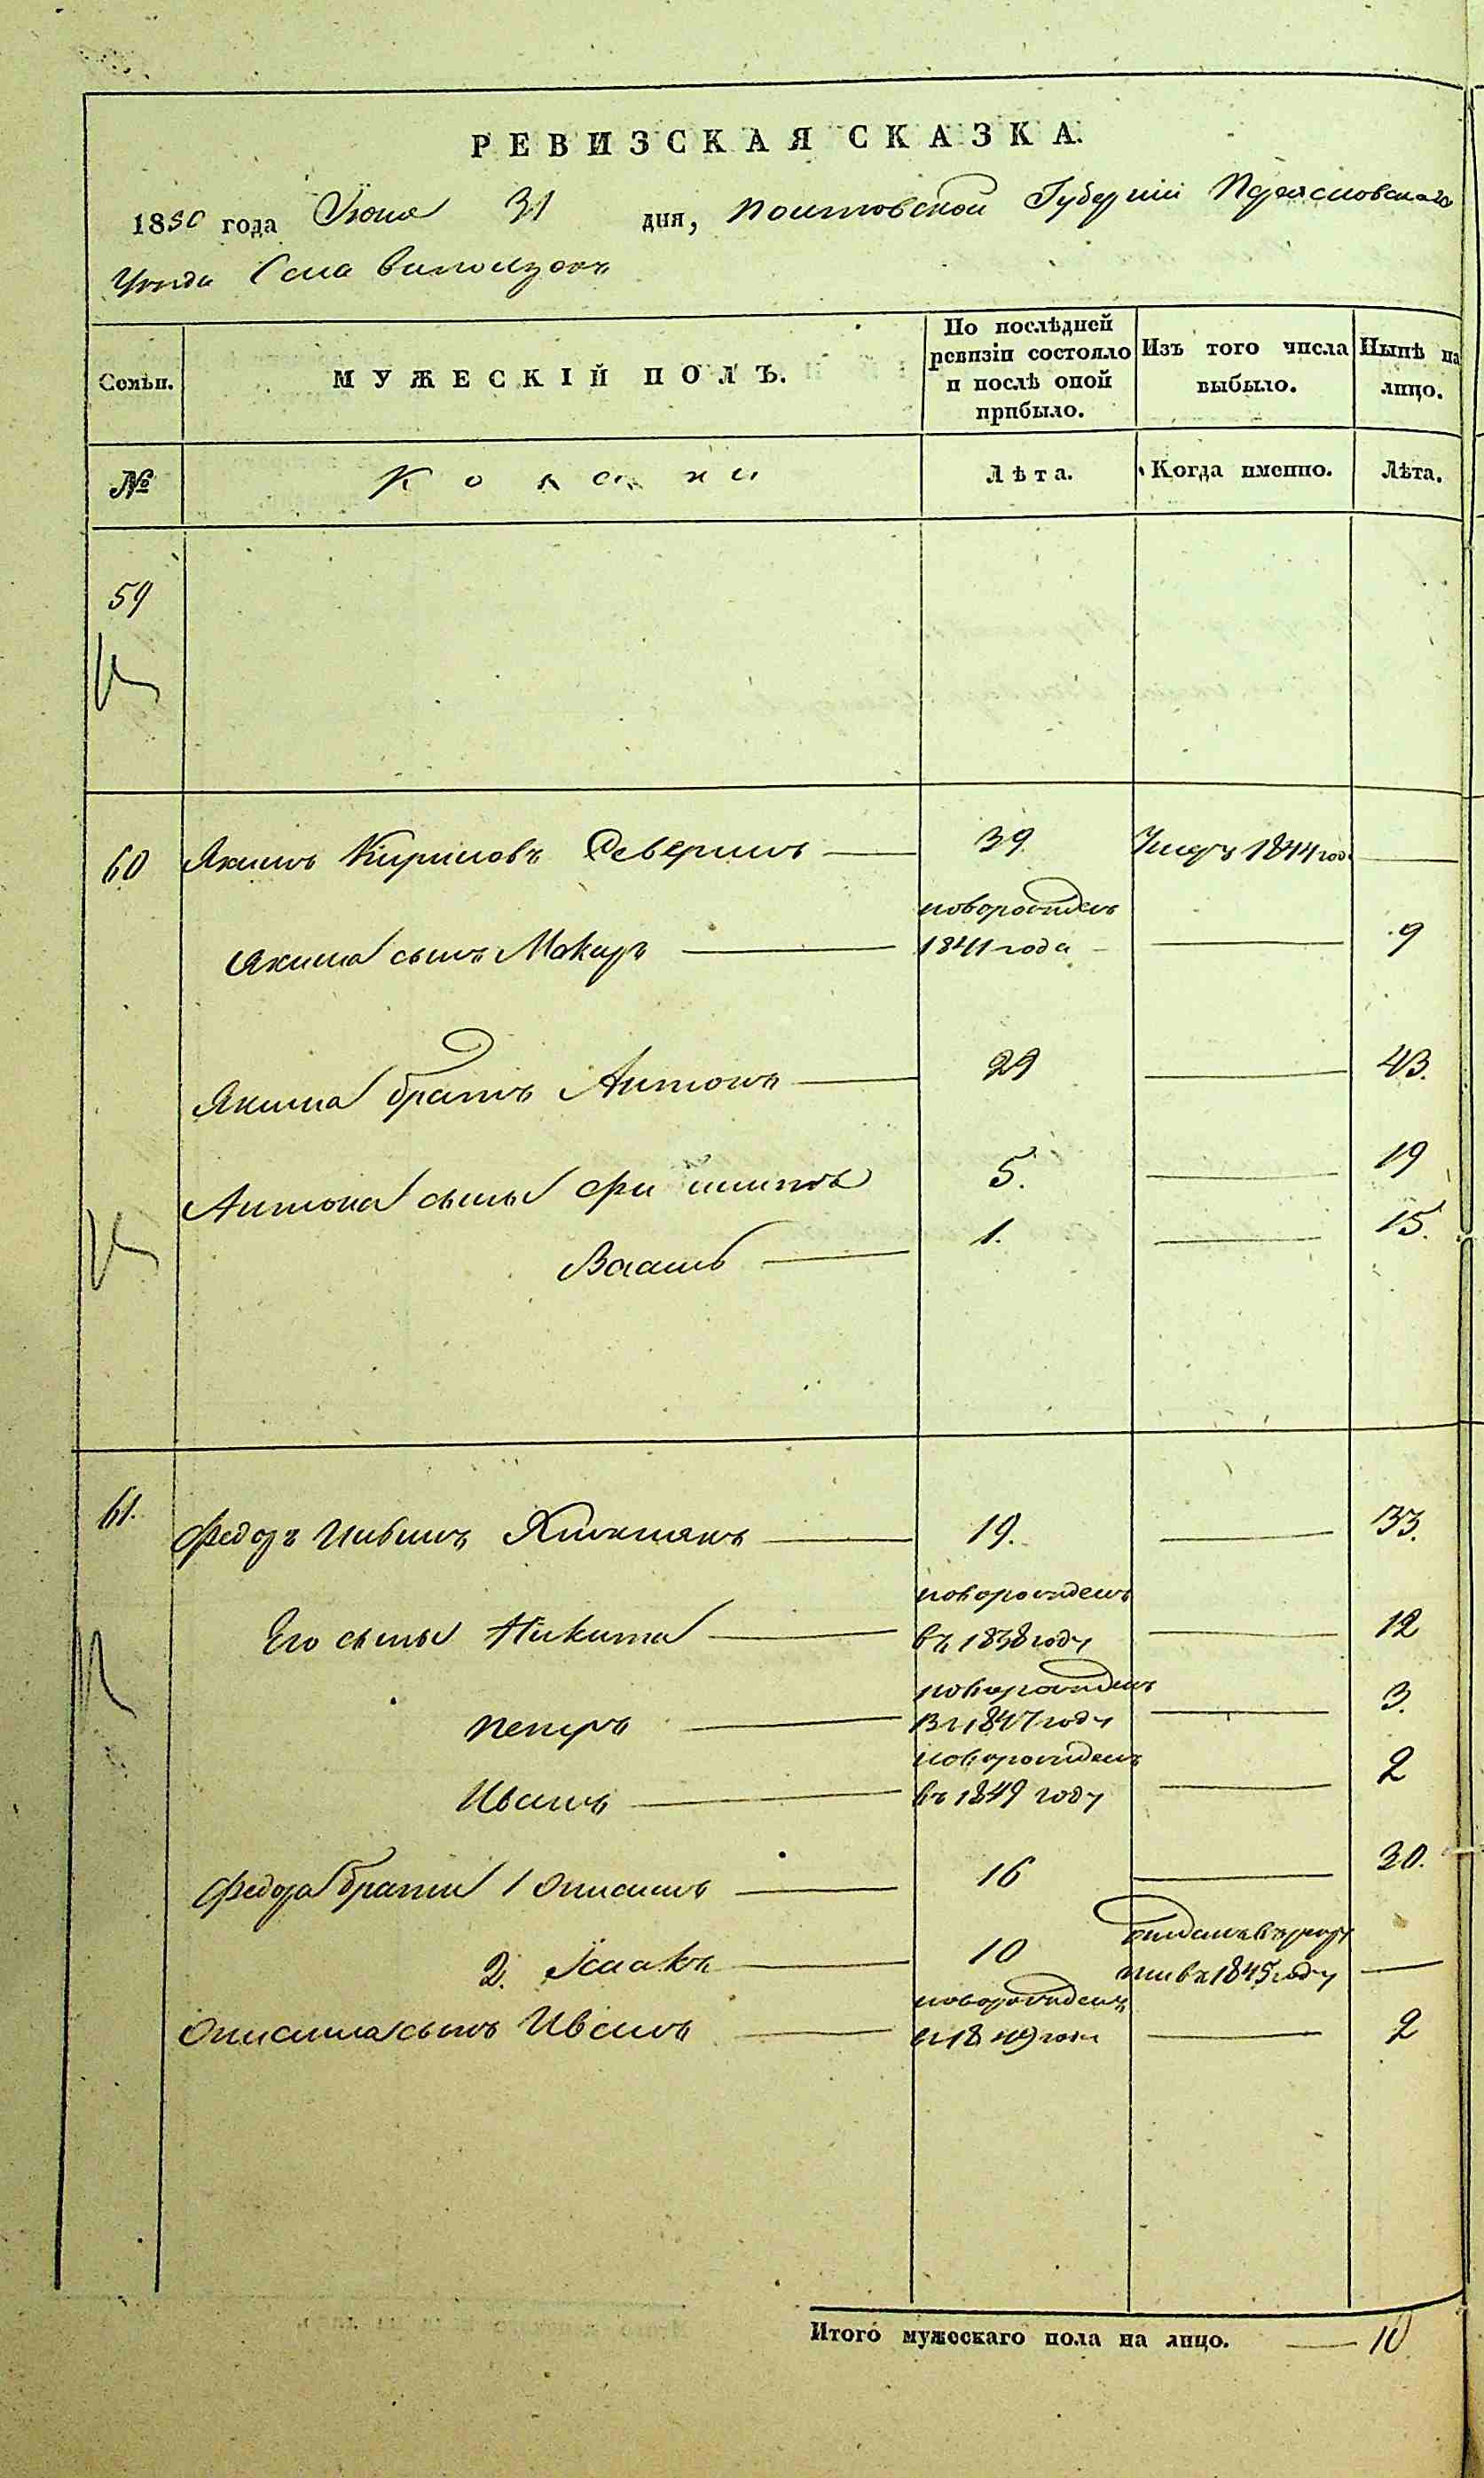 РЕВИЗСКАЯ СКАЗКА.
1850 года Июня 31 дня, Полтовской Губерніи Переясловскаго
Уезда Села
Семьи. МУЖЕСКІЙ ПОЛЪ. По послѣдней ревизіи состояло и послѣ оной прибыло. Изъ того числа выбыло. Нынѣ на лицо.
№ Козаки Лѣта. Когда именно. Лѣта.
59
60 Якимъ Кириловъ Северинъ 39 Умеръ 1844 год
Якима сынъ Макаръ новорожденъ 1841 года 9
Якима братъ Антонъ 29 43.
Антона сыны Филиппъ 5. 19
Власъ 1. 15.
61. Федоръ Ивановъ 19. 33.
Его сыны Никита новорожденъ въ 1838 году 12
Петръ новорожденъ въ 1847 году 3.
Иванъ новорожденъ въ 1849 году 2
Федора братья 1 Онисимъ 16 30.
2. Исаакъ 10 отданъ въ рекруты въ 1845 году
Онисима сынъ Иванъ новорожденъ въ 1849 годе 2
Итого мужескаго пола на лицо. 10